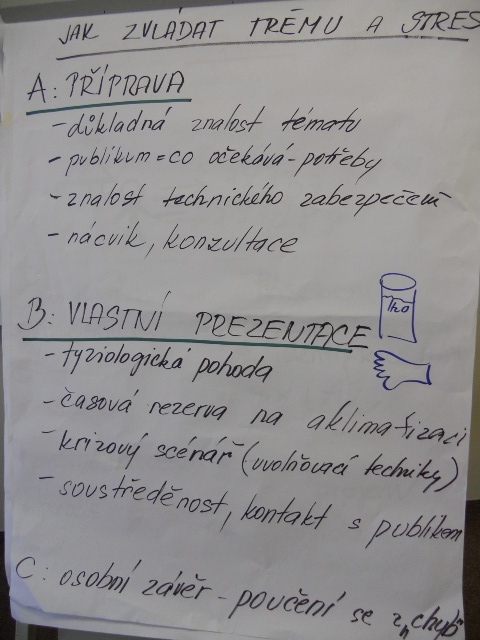 JAK ZVLÁDAT TRÉMU A STRES
A: PŘÍPRAVA
- důkladná znalost tématu
- publikum = co očekává - potřeby
- znalost technického zabezpečení
- nácvik, konzultace
H2O
B: VLASTNÍ PREZENTACE
- fyziologická pohoda
- časová rezerva na aklimatizaci
- krizový scénář (uvolňovací techniky)
- soustředěnost, kontakt s publikem
C: osobní závěr - poučení se z "chyb"